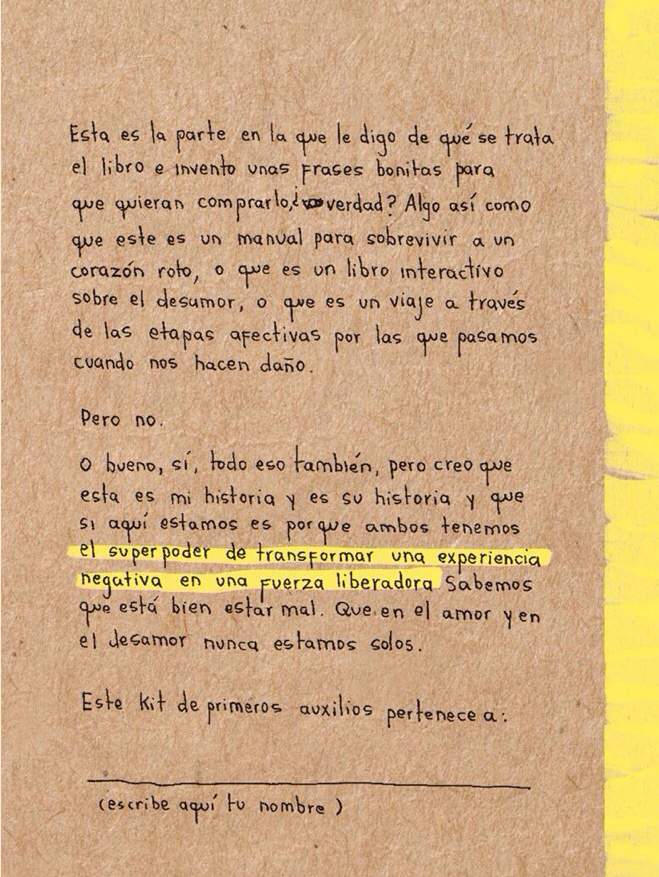 Esta es la parte en la que le digo de qué se trata
el libro e invento unas frases bonitas para
que quieran comprarlo, ¿verdad? Algo así como
que este es un manual para sobrevivir a un
corazón roto, o que es un libro interactivo
sobre el desamor, o que es un viaje a través
de las etapas afectivas por las que pasamos
cuando nos hacen daño.
Pero no.
O bueno, sí, todo eso también, pero creo que
esta es mi historia y es su historia y que
si aquí estamos es porque ambos tenemos
el superpoder de transformar una experiencia
negativa en una fuerza liberadora Sabemos
que está bien estar mal. Que en el amor y en
el desamor nunca estamos solos.
Este kit de primeros auxilios pertenece a:
(escribe aquí tu nombre)